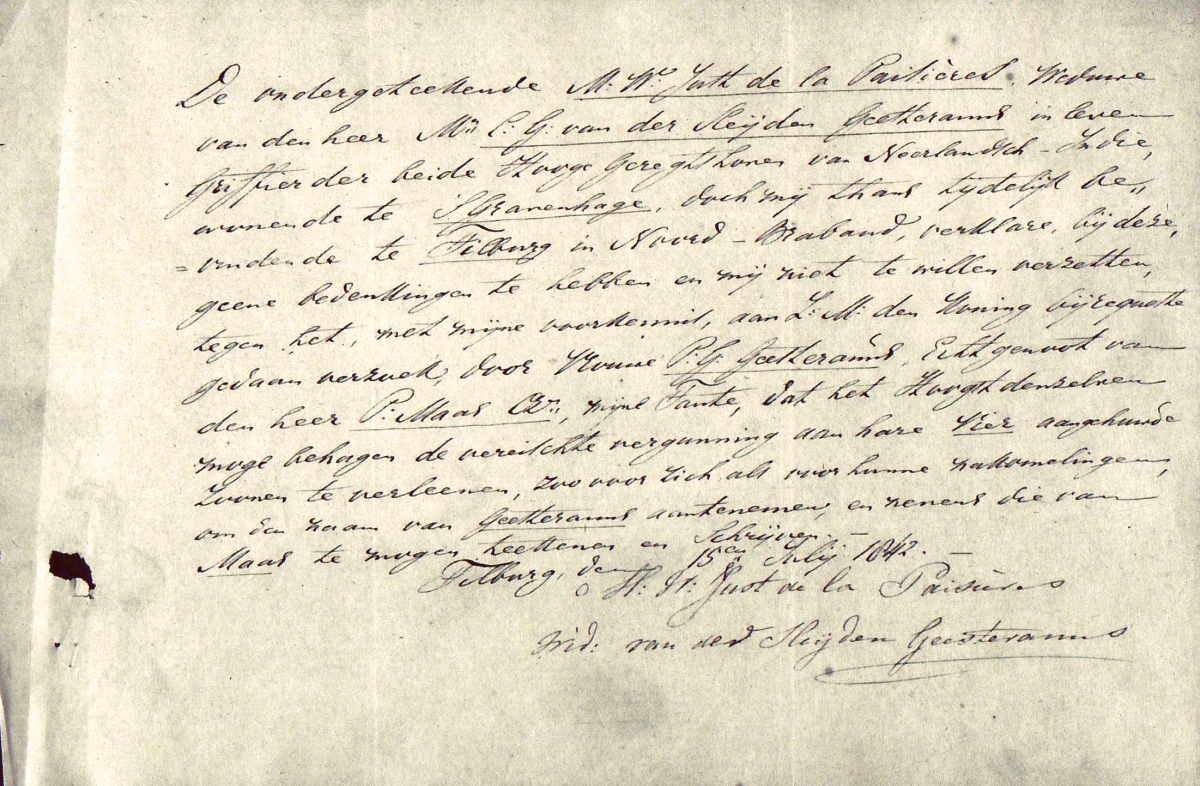 De ondergeteekende M: W: Just de la Paisières, Weduwe
van den heer Mr: C: G: van der Sleijden Geesteranus in leven
Griffier der beide Hooge Geregtshoven van Neerlandsch-Indie,
wonende te S'Gravenhage, doch mij thans tydelijk be„
=vindende te Tilburg in Noord-Braband, verklare, bij deze,
geene bedenkingen te hebben en mij niet te willen verzetten,
tegen het, met mijne voorkennis, aan Z: M: den Koning bij requeste
gedaan verzoek, door Vrouwe P: G: Geesteranus, Echtgenoot van
den heer P: Maas Czn:, mijne Tante, dat het Hoogst denzelven
moge behagen de vereischte vergunning aan hare vier aangehuwde
zoonen te verleenen, zoo voor zich als voor hunne nakomelingen,
om den naam van Geesteranus aantenemen, en nevens die van
Maas te mogen teekenen en Schrijven. –
Tilburg, den 15en Julij 1842. –
Just de la Paisières
Wed: van der Sleijden Geesteranus